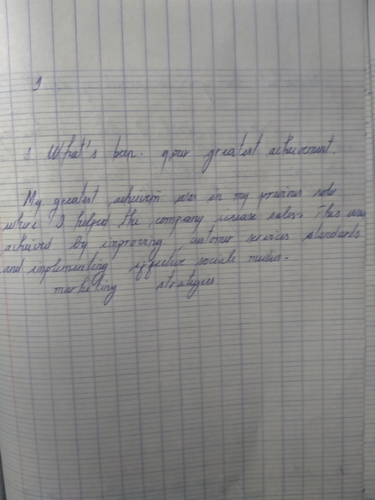 1
1 What's been your greatest achievement.
My greatest achievem was in my previous role
where I helped the company increase sales. This was
achieved by improving customer services standards
and implementing effective sociale median.
marketing strategies